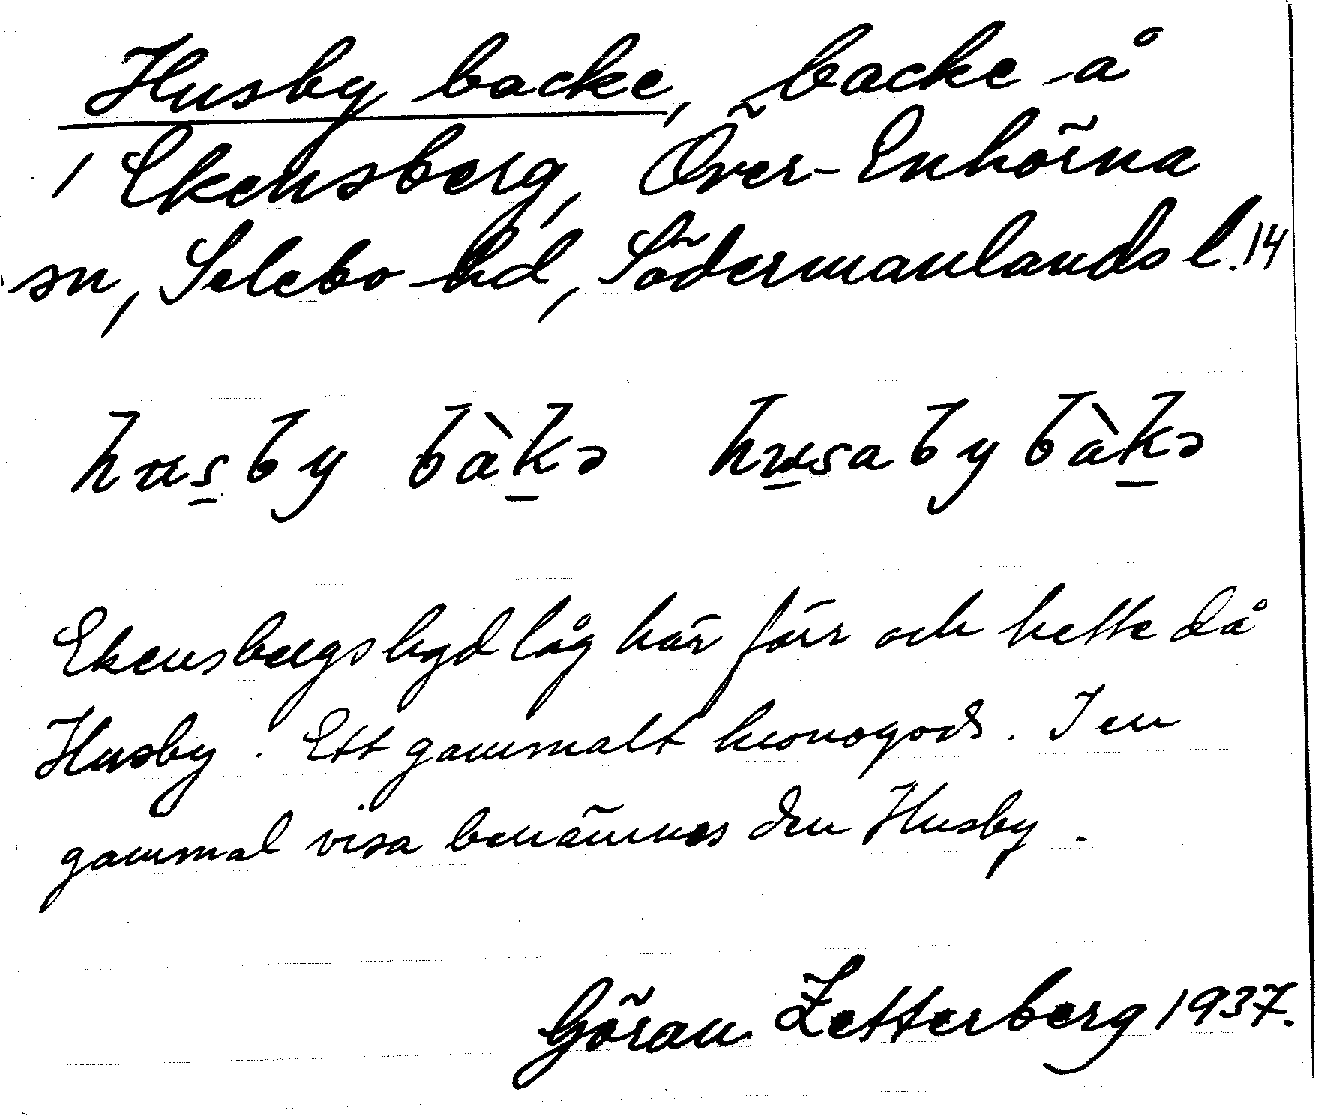 Husby backe, backe å
1 Ekensberg, Över-Enhörna
sn, Selebo hd, Södermanlands l. 14
husby bàkə husabybàkə
Ekensbergs byd låg här förr och hette då
Husby. Ett gammalt kronogods. I en
gammal visa benämnes den Husby.
Göran Zetterberg 1937.